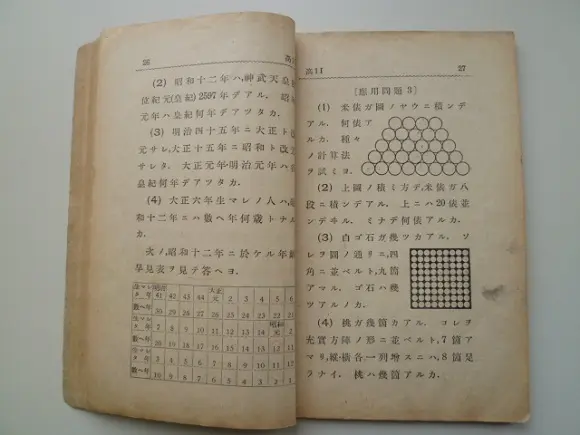 26
(2) 昭和十二年ハ,神武天皇
位紀元(皇紀)2597年デアル. 昭
元年ハ皇紀何年デアツタカ.
(3) 明治四十五年ニ大正ト改
元サレ,大正十五年ニ昭和ト改
サレタ. 大正元年明治元年ハ
皇紀何年デアツタカ.
(4) 大正六年生マレノ人ハ,
和十二年ニハ數ヘ年何歳トナル
カ.
次ノ,昭和十二年ニ於ケル年
早見表ヲ見テ答ヘヨ.
高11
27
[應用問題3]
(1) 米俵ガ圖ノヤウニ積ンデ
アル. 何俵ア
ルカ. 種々
ノ計算法
ヲ試ミヨ.
(2) 上圖ノ積ミ方デ,米俵ガ八
段ニ積ンデアル. 上ニハ20俵並
ンデヰル. ミナデ何俵アルカ.
(3) 白ゴ石ガ幾ツカアル. ソ
レヲ圖ノ通リニ,四
角ニ並ベルト,九箇
アマル. ゴ石ハ幾
ツアルノカ.
(4) 桃ガ幾箇カアル. コレヲ
充實方陣ノ形ニ並ベルト,7箇ア
マリ,縱・橫各一列增スニハ,8箇足
ラナイ. 桃ハ幾箇アルカ.